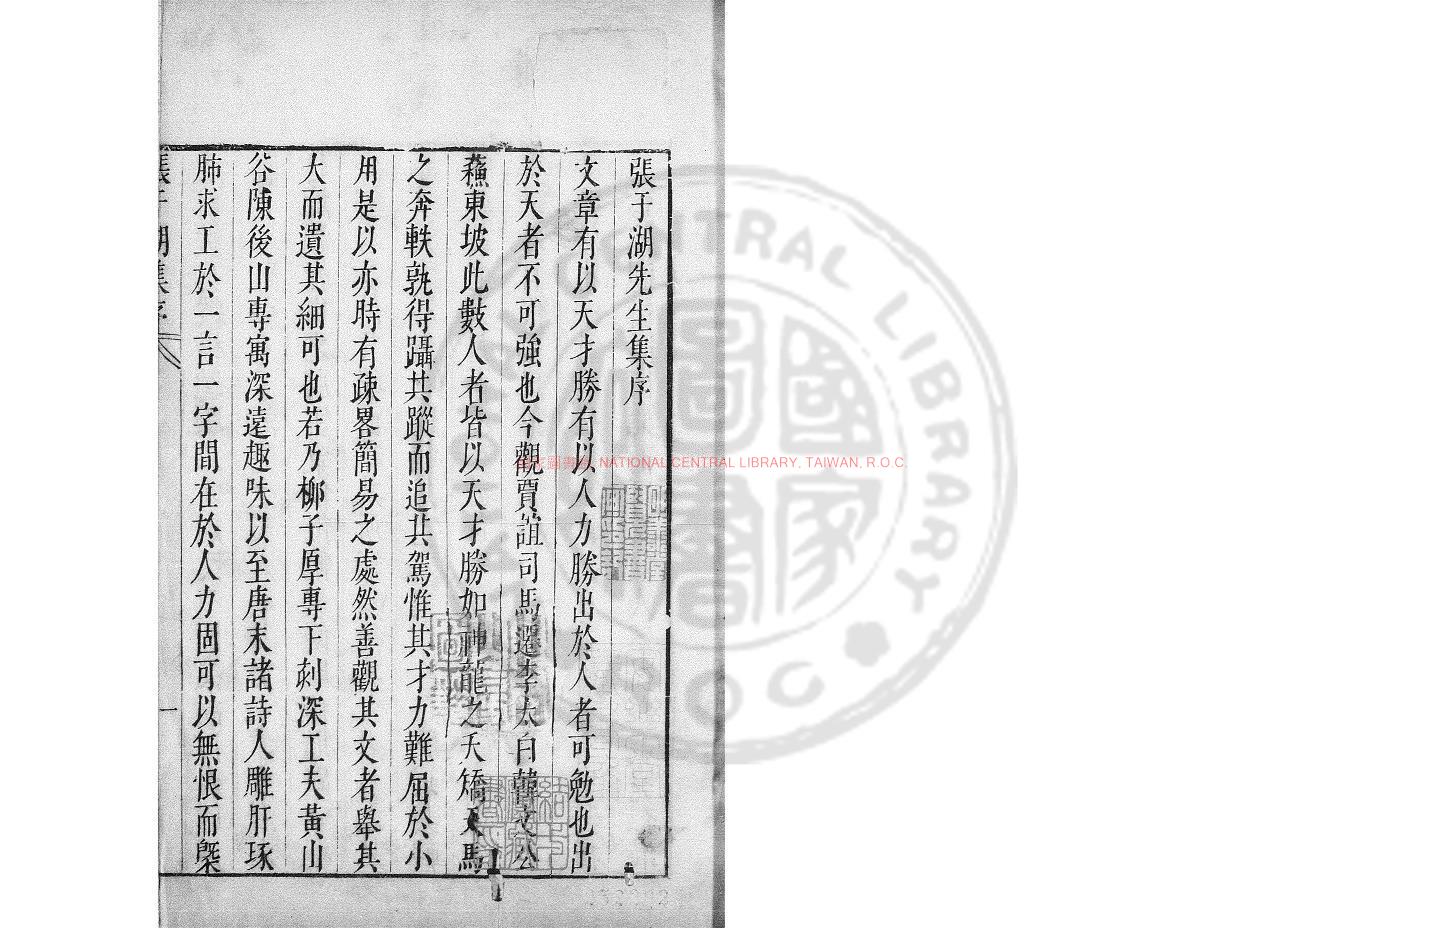 張于湖先生集序
文章有以天才勝有以人力勝出於人者可勉也出
於天者不可強也今觀賈誼司馬遷李太白韓文公
蘇東坡此數人者皆以天才勝如神龍之夭矯天馬
之奔軼孰得躡其蹤而追其駕惟其才力難屈於小
用是以亦時有疎畧簡易之處然善觀其文者舉其
大而遺其細可也若乃柳子厚專下刻深工夫黃山
谷陳後山專寓深遠趣味以至唐末諸詩人雕肝琢
肺求工於一言一字間在於人力固可以無恨而槩
張于湖集序
一
國家圖書館, NATIONAL CENTRAL LIBRARY, TAIWAN, R.O.C.